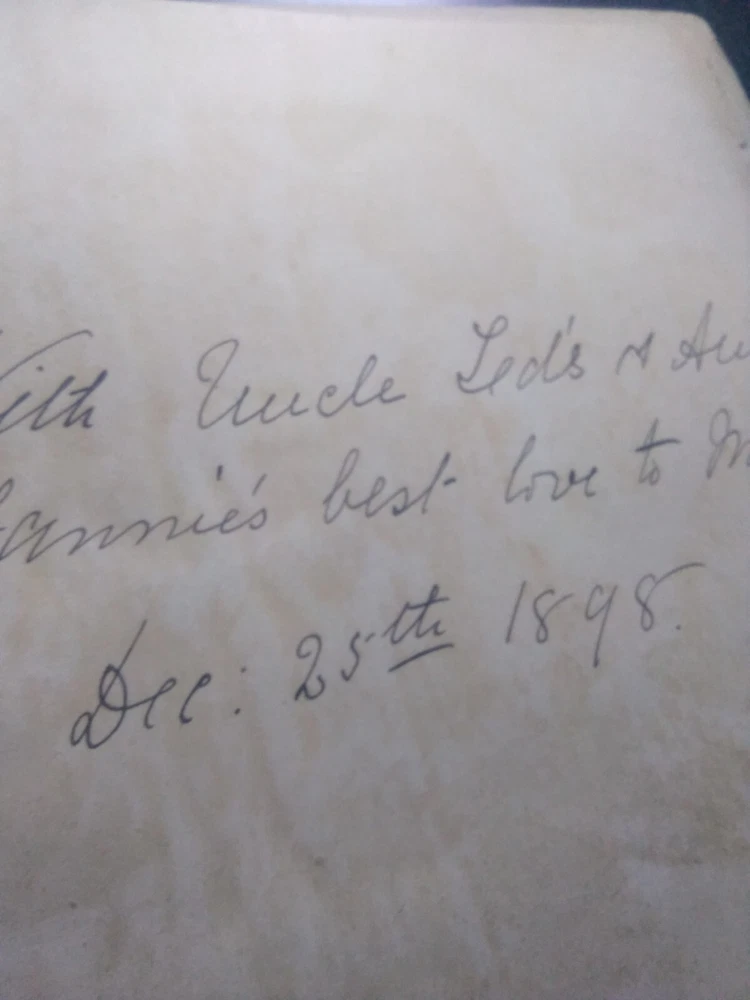 With Uncle Ted's & Au
annie's best love to M
Dec: 25th 1898.